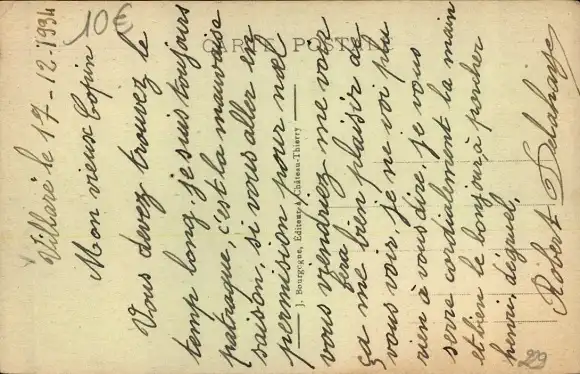 Villaré le 17-12-1934
Mon vieux Copin
Vous devez trouvez le
temp long, je suis toujours
patraque, c'est la mauvaise
saison, si vous aller en
permission pour noel
vous viendriez me voir
ça me fera bien plaisir de
vous voir, je ne voi plu
rien à vous dire, je vous
serre cordialement la main
et bien le bonjour à porcher
henri, dégruel,
Robert Delahaye
CARTE POSTALE
J. Bourgogne, Éditeur à Château-Thierry
10€
229